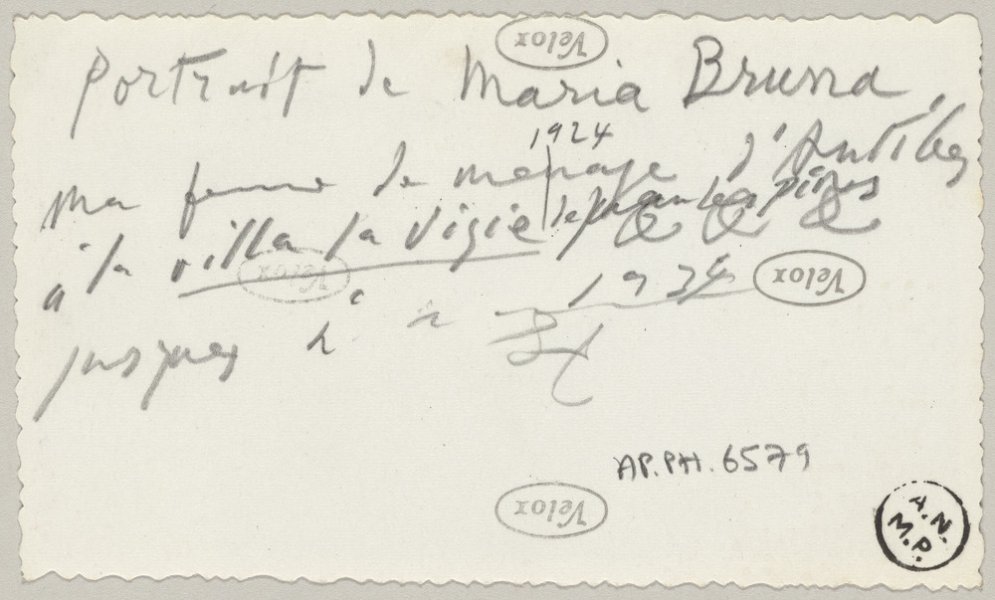 Velox
Portrait de Maria Bruna,
1924
ma femme de ménage d'Antibes
à la villa la Vigie Juan les pins
Velox
Velox
jusques à 1924
AP.PH.6579
Velox
A.N.
M.P.